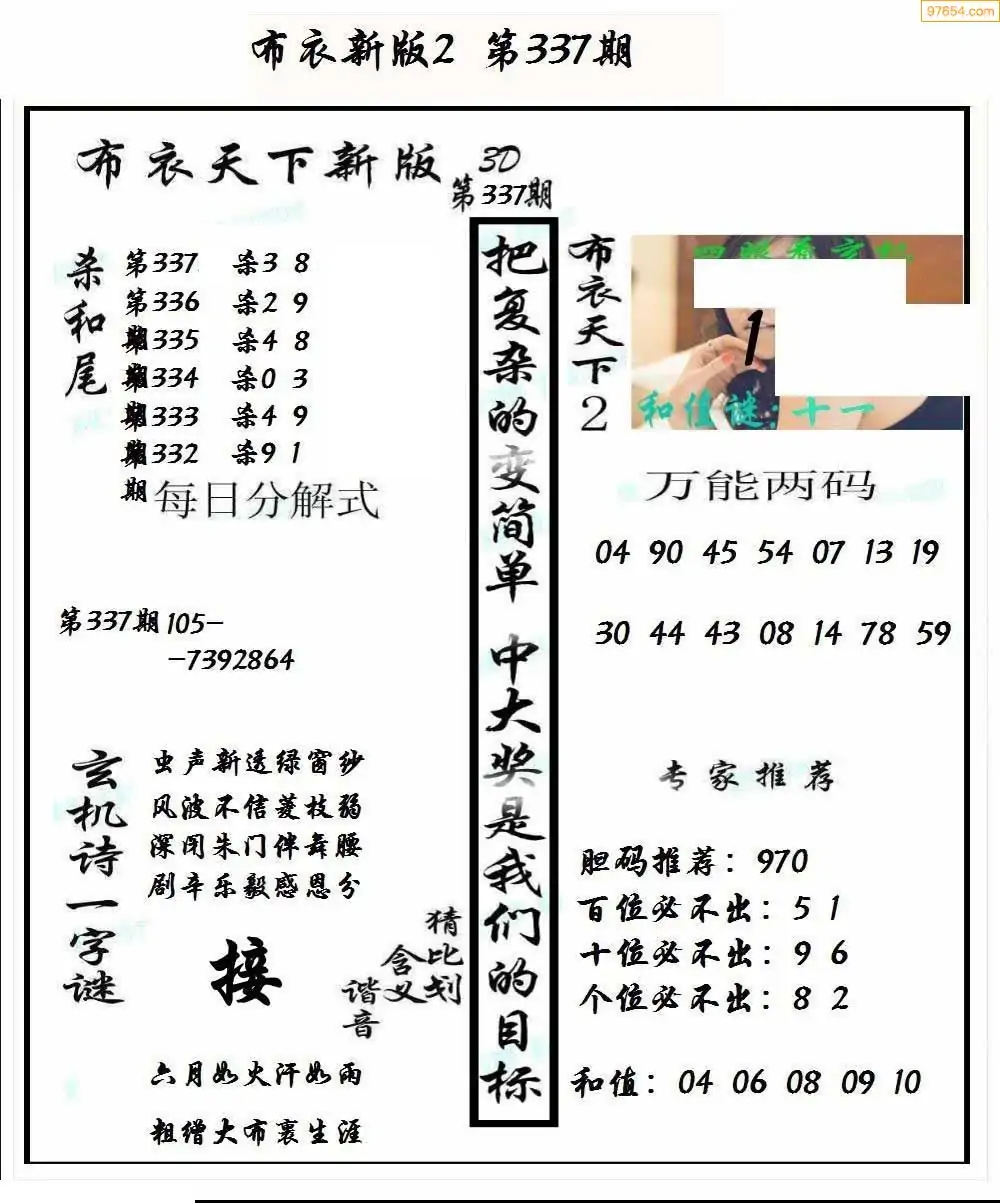 97654.com
布衣新版2 第337期
布衣天下新版
3D
第337期
杀和尾
第337 杀3 8
第336 杀2 9
335 杀4 8
334 杀0 3
333 杀4 9
332 杀9 1
期
每日分解式
第337期 105-
-7392864
玄机诗一字谜
虫声新透绿窗纱
风波不信菱枝弱
深闭朱门伴舞腰
剧辛乐毅感恩分
接
猜比划
含义
谐音
六月如火汗如雨
粗缯大布裹生涯
把复杂的变简单 中大奖是我们的目标
布衣天下2
1
和值谜:十一
万能两码
04 90 45 54 07 13 19
30 44 43 08 14 78 59
专家推荐
胆码推荐: 970
百位必不出: 5 1
十位必不出: 9 6
个位必不出: 8 2
和值: 04 06 08 09 10